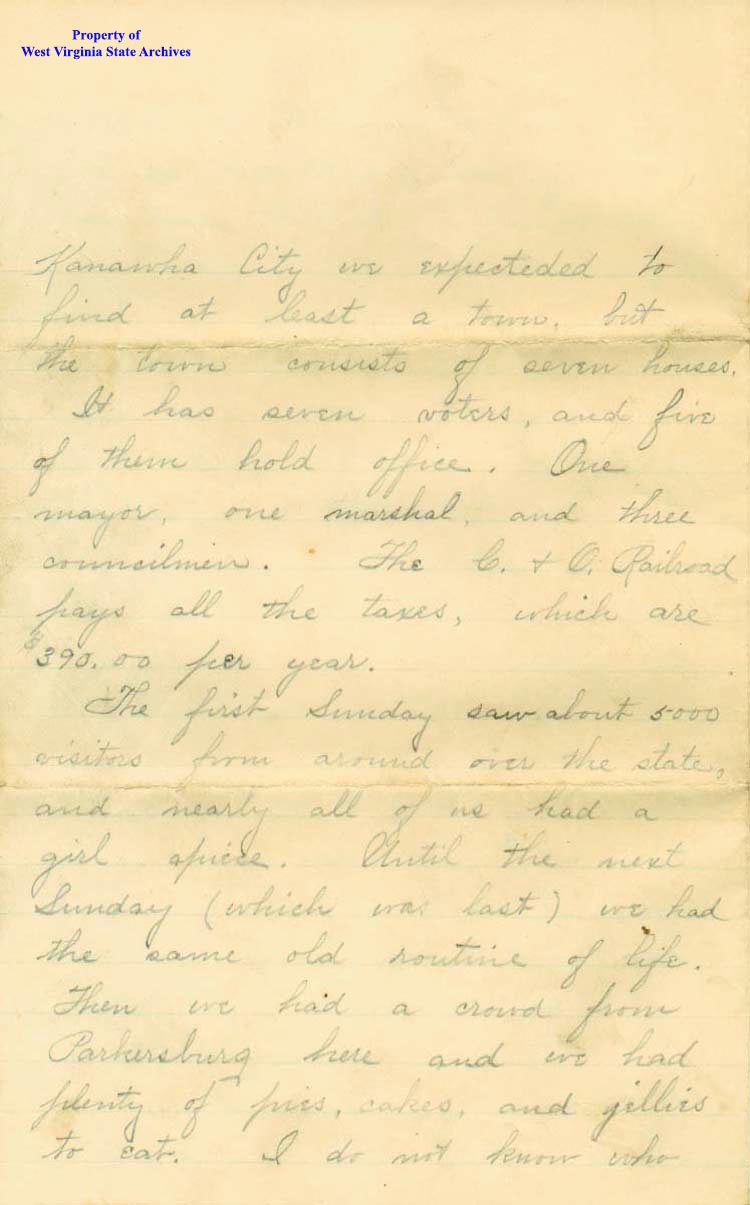 Property of
West Virginia State Archives
Kanawha City we expecteded to
find at least a town, but
the town consists of seven houses.
It has seven voters, and five
of them hold office. One
mayor, one marshal, and three
councilmen. The C. & O. Railroad
pays all the taxes, which are
$390.00 per year.
The first Sunday saw about 5000
visitors from around over the state,
and nearly all of us had a
girl apiece. Until the next
Sunday (which was last) we had
the same old routine of life.
Then we had a crowd from
Parkersburg here and we had
plenty of pies, cakes, and jellies
to eat. I do not know who